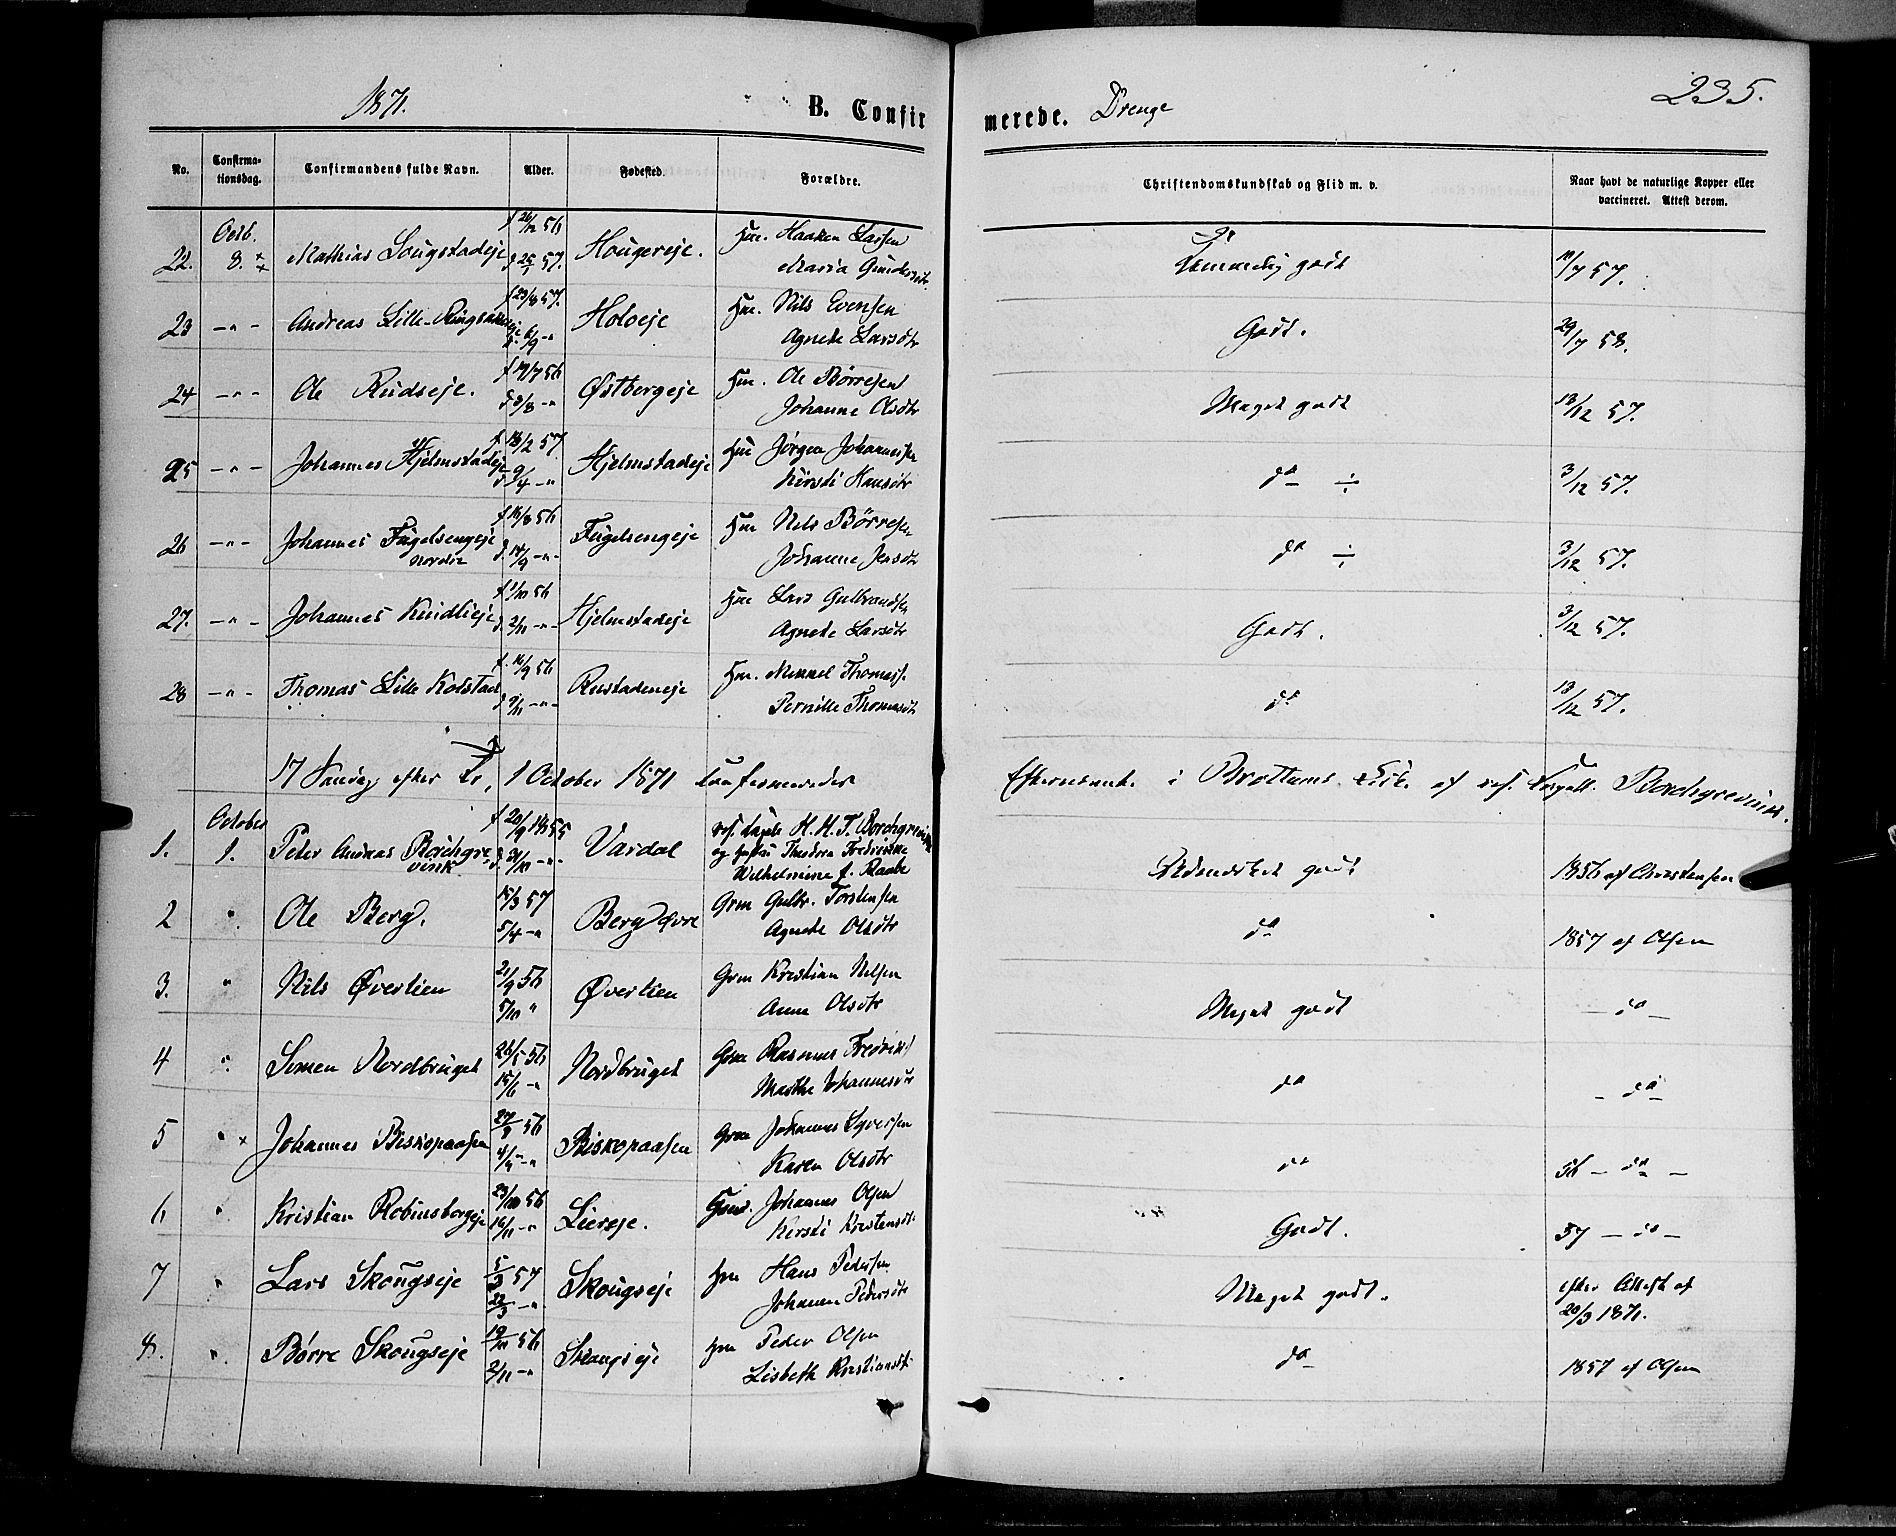 1871.
B. Confirmerede. Drenge
235.
No.
Confirmationsdag.
Confirmandens fulde Navn.
Alder.
Fødested.
Forældre.
Christendomskundskab og Flid m. v.
Naar havt de naturlige Kopper eller vaccineret. Attest derom.
22. Octb. 8. Mathias Sougstadeje f 26/12 56 d 25/1 57. Hougereje. Hm. Haaken Larsen Maria Gundersdtr. Temmelig godt 19/7 57.
23 -"- Andreas Lille-Ringsakereje f 23/8 57. d 6/9 -"- Holoeje Hm. Nils Evensen Agnete Larsdtr Godt. 29/7 58.
24 -"- Ole Rudseje. f 19/7 56 d 3/8 -"- Østbergeje Hm. Ole Børresen Johanne Olsdtr Meget godt 13/12 57.
25 -"- Johannes Hjelmstadeje f 18/2 57. d 9/4 -"- Hjelmstadeje Hm Jørgen Johannessen Kirsti Hansdtr do ÷ 3/12 57.
26 -"- Johannes Fugelsengeje nordre f 16/8 56 d 14/9 -"- Fugelsengeje Hm Nils Børresen Johanne Jensdtr do ÷ 3/12 57.
27. -"- Johannes Kindlieje f 1/10 56 d. 2/11 -"- Hjelmstadeje Hm Lars Gulbrandsen Agnete Larsdtr Godt. 3/12 57.
28 -"- Thomas Lille Kolstad f. 16/9 56 d 9/11 -"- Rustadeneje Hm. Mikkel Thomass. Pernille Thomasdtr do 13/12 57.
17 Søndag efter Tr, 1 October 1871 confirmeredes Efternævnte i Brøttums Kirke af res. Kapell. Borchgrevink.
1. October 1. Peter Andreas Borchgrevink f 20/9 1855 d. 21/10 -"- Vardal res. Kapel. H. H. T. Borchgrevink og Hustru Theodora Fredrikke Wilhelmine f. Raabe Udmærket godt 1856 af Christensen
2 " Ole Berg. 15/3 57 5/4 -"- Berg øvre Grm Gulbr. Torstensen Agnete Olsdtr do 1857 af Olsen
3. " Nils Øverlien 21/9 56 5/10 " Øverlien Grm Kristian Nilsen Anne Olsdtr Meget godt - do -
4 " Simen Nordbruget 26/5 56 15/6 -"- Nordbruget Grm Rasmus Fredriks. Marthe Johannesdtr do - do -
5 " × Johannes Biskopaasen 27/8 56 4/9 -"- Biskopaasen Grm Johannes Syversen Karen Olsdtr do 56 - do -
6 " Kristian Robinsborgeje 23/10 56 16/11 -"- Liereje. Hm. Johannes Olsen Kirsti Kristensdtr Godt. 57 - do -
7 " Lars Skougseje 5/3 57 22/3 -"- Skougseje Hm Hans Pedersen Johanne Pedersdtr Meget godt. efter Attest af 20/3 1871.
8. " Børre Skougseje 19/10 56 2/11 -"- Skougseje Hm Peder Olsen Lisbeth Kristiansdtr do 1857 af Olsen